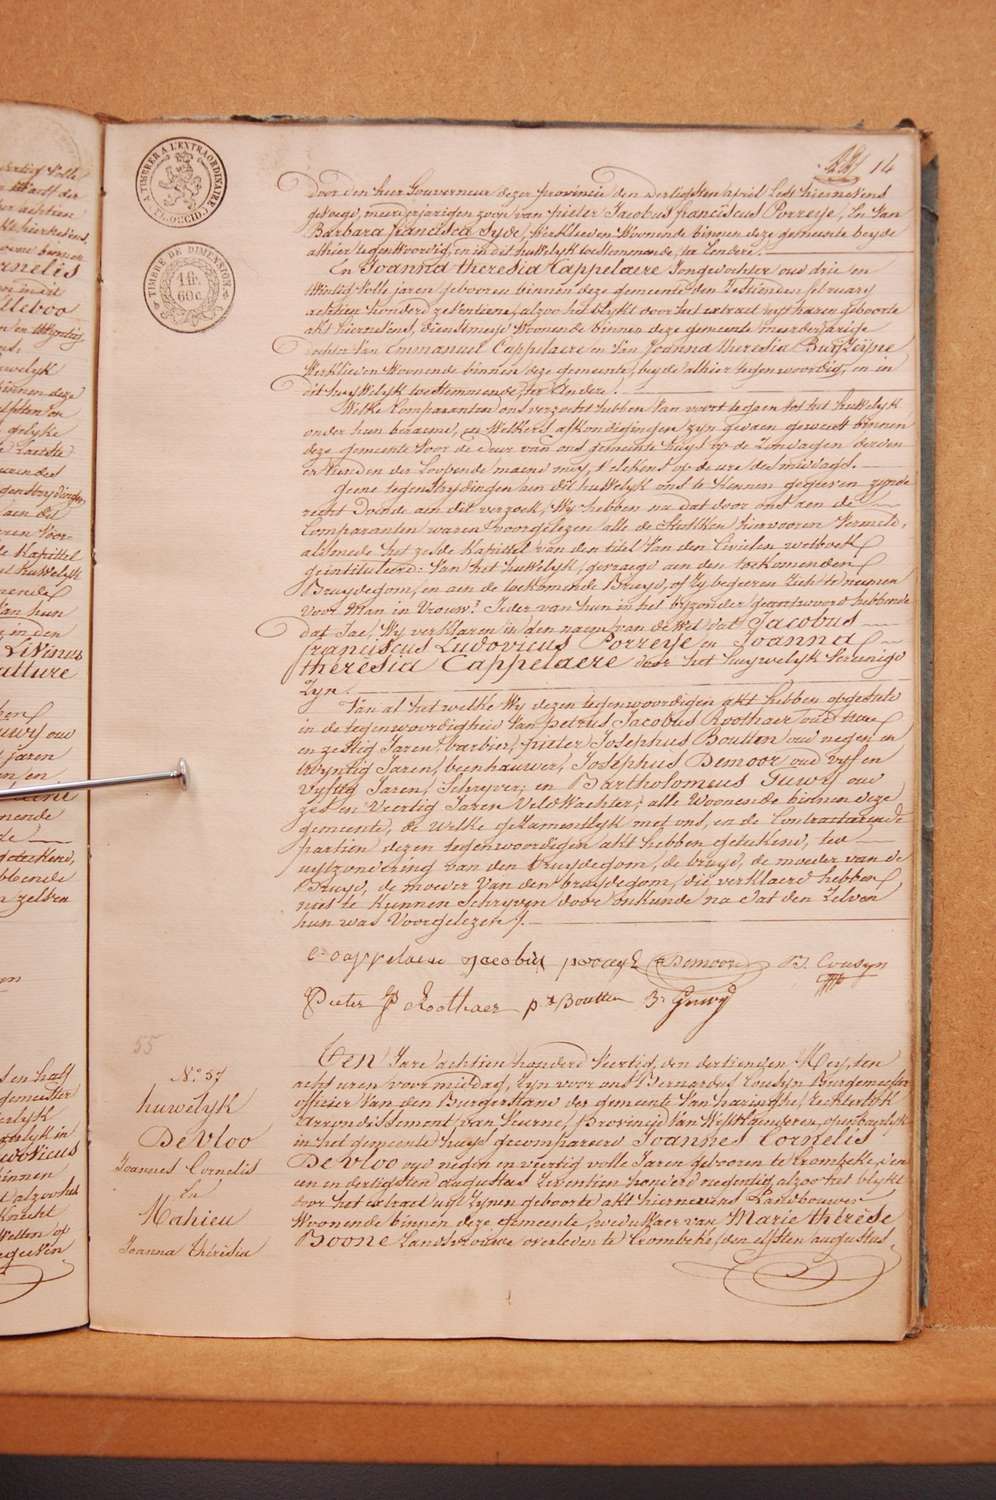 TIMBRER A L'EXTRAORDINAIRE
14
TIMBRE DE DIMENSION
1 fr.
60 c.
Door den heer Gouverneur dezer provincie den dertigsten April Lest hiernevens
gevoegd, meerderjarigen zoon van pieter Jacobus franciscus Porreye, En Van
Barbara francisca Syde, Werklieden Woonende binnen deze gemeente beyde
alhier tegenwoordig, en in dit huwelyk toestemmende, ter Eendere.
En Joanna theresia Cappelaere Jongedochter oud drie en
twintig volle jaren geboren binnen deze gemeente den Zestienden february
achttien honderd zeventiene, alzoo het blykt door het extract uyt haren geboorte
akt hiernevens, dienstmeyd Woonende binnen deze gemeente meerderjarige
dochter van Emmanuel Cappelaere en Van Joanna theresia
Werklieden Woonende binnen deze gemeente, beyde alhier tegenwoordig, en in
dit huwelyk toestemmende, ter Andere.
Welke Comparanten ons verzocht hebben van voort te gaen tot het huwelyk
onder hun beraemd, en Welkers afkondigingen zyn gedaen geweest binnen
deze gemeente Voor de deur van ons gemeente huys op de Zondagen derden
en tienden der Loopende maend mey, telckens op de ure des middags.
Geene tegenstrydingen aen dit huwelyk ons te kennen gegeven zynde
regt doende aen dit verzoek, Wy hebben na dat door ons aen de
Comparanten waren voorgelezen alle de Stukken hiervooren vermeld,
alsmede het zesde kapittel van den titel Van den Civielen wetboek
geintituleerd: Van het huwelyk, gevraegd aen den toekomenden
Bruydegom, en aen de toekomende Bruyd, of Zy begeeren Zich te nemen
Voor Man en Vrouw? Ieder van hun in het byzonder geantwoord hebbende
dat Jae, Wy verklaren in den naem van de Wet dat Jacobus
franciscus Ludovicus Porreye en Joanna
theresia Cappelaere door het huwelyk Vereenigd
Zyn.
Van al het welke Wy dezen tegenwoordigen akt hebben opgesteld
in de tegenwoordigheid Van petrus Jacobus Roothaer oud twee
en zestig Jaren, barbier, pieter Josephus Boutten oud negen en
twyntig Jaren, beenhauwer, Josephus Demoor oud vyf en
Vyftig Jaren, Schryver; en Bartholomeus Guwy oud
zes en Veertig Jaren Veldwachter, alle Woonende binnen deze
gemeente, de Welke gezamentlyk met ons, en de Contracterende
partien dezen tegenwoordigen akt hebben geteekend, ter
uytzondering van den bruydegom, de bruyd, de moeder van de
Bruyd, de moeder Van den bruydegom, die verklaerd hebben
niet te kunnen Schryven door onkunde na dat den Zelven
hun was Voorgelezen.
E Cappelaere Jacobus porreye Demoor B. Cousyn
Pieter J Roothaer p J Boutten B. Guwy
55
No. 57
huwelyk
De Vloo
Joannes Cornelis
En
Mahieu
Joanna thérésia
Een Jare achtien honderd Veertig, den dertienden Mey, ten
acht uren voormiddag, Zyn voor ons Bernardus Cousyn Burgemeester
officier Van den Burgerstand der gemeente Van haringhe, rechterlyk
Arrondissement van Veurne, Provincie Van Westvlaenderen, openbaerlyk
in het gemeente huys gecompareerd Joannes Cornelis
De Vloo oud negen en veertig volle Jaren geboren te Crombeke, den
een en dertigsten augustus Zeventien honderd negentig, alzoo het blykt
door het extract uyt Zynen geboorte akt hiernevens Landbouwer
Woonende binnen deze gemeente, weduwaer van Marie thérèse
Boone Landsvrouwe overleden te Crombeke, den elfsten augustus